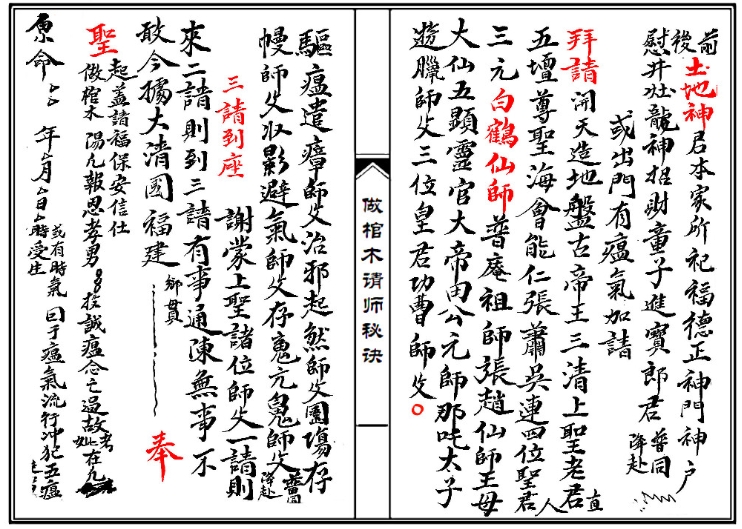 前後土地神君本家所祀福德正神門神户
慰井灶龍神招財童子進寶郎君普同降赴
或出門有瘟氣加請
拜請開天造地盤古帝王三清上聖老君
五壇尊聖海會能仁張蕭吳連四位聖君
三元白鶴仙師普庵祖師張趙仙師王母
大仙五顯靈官大帝田公元師那吒太子
遊臘師父三位皇君功曹師父
做棺木请师秘诀
驅瘟遣瘴師父治邪起然師父團傷存
幔師父收影避氣師父存鬼元師父普同降赴
三請到座
謝蒙上聖諸位師父一請則
來二請則到三請有事通陳無事不
敢今據大清國福建鄉貫奉
聖
起蓋請福保安信仕
做棺木陽凢報恩孝男投誠瘟念亡過故考妣在
原命年月日時受生或有時氣曰于瘟氣流行冲犯五瘟